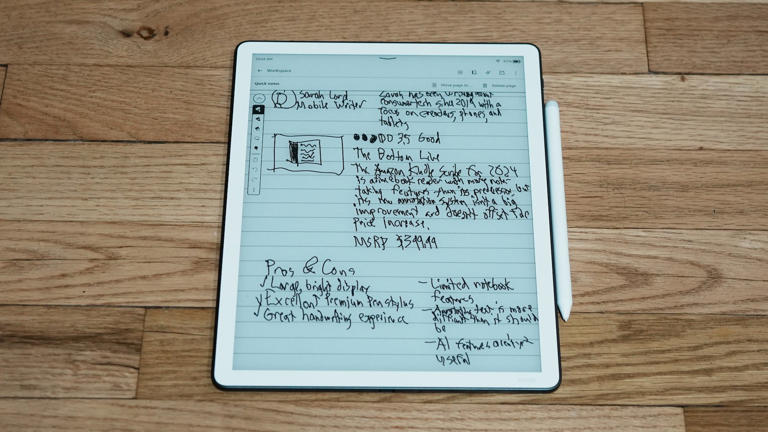 Workspace
Quick notes
Move page to
Delete page
Sarah Lord
Mobile Writer
Sarah has been writing
consumer tech since 2019 with a
focus on ereaders, phones, and
tablets
3.5 Good
The Bottom Line
The Amazon Kindle Scribe for 2024
is a fine ebook reader with more note
taking features than its predecessor, but
its new annotation system isn't a big
improvement and doesn't offset the
price increase.
MSRP $399.99
Pros & Cons
Large, bright display
Excellent Premium Pen stylus
Great handwriting experience
- Limited notebook
features
- text is more
difficult than it should
be
- AI features
useful